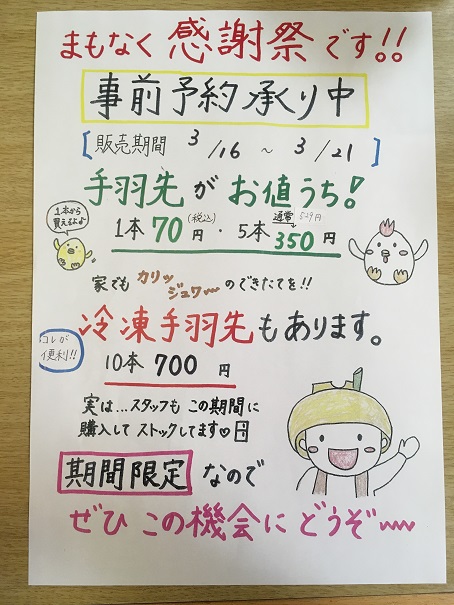 まもなく 感謝祭 です!!
事前予約承り中
[ 販売期間 3/16 ~ 3/21 ]
手羽先が お値うち!
1本から
買えるよ♪
1本 70円 (税込)・5本 通常529円→350円
家でも カリッ ジュワ〜 のできたてを!!
コレが
便利!!
冷凍手羽先もあります。
10本 700 円
実は…スタッフも この期間に
購入して ストックしてます♡
期間限定 なので
ぜひ この機会に どうぞ〜